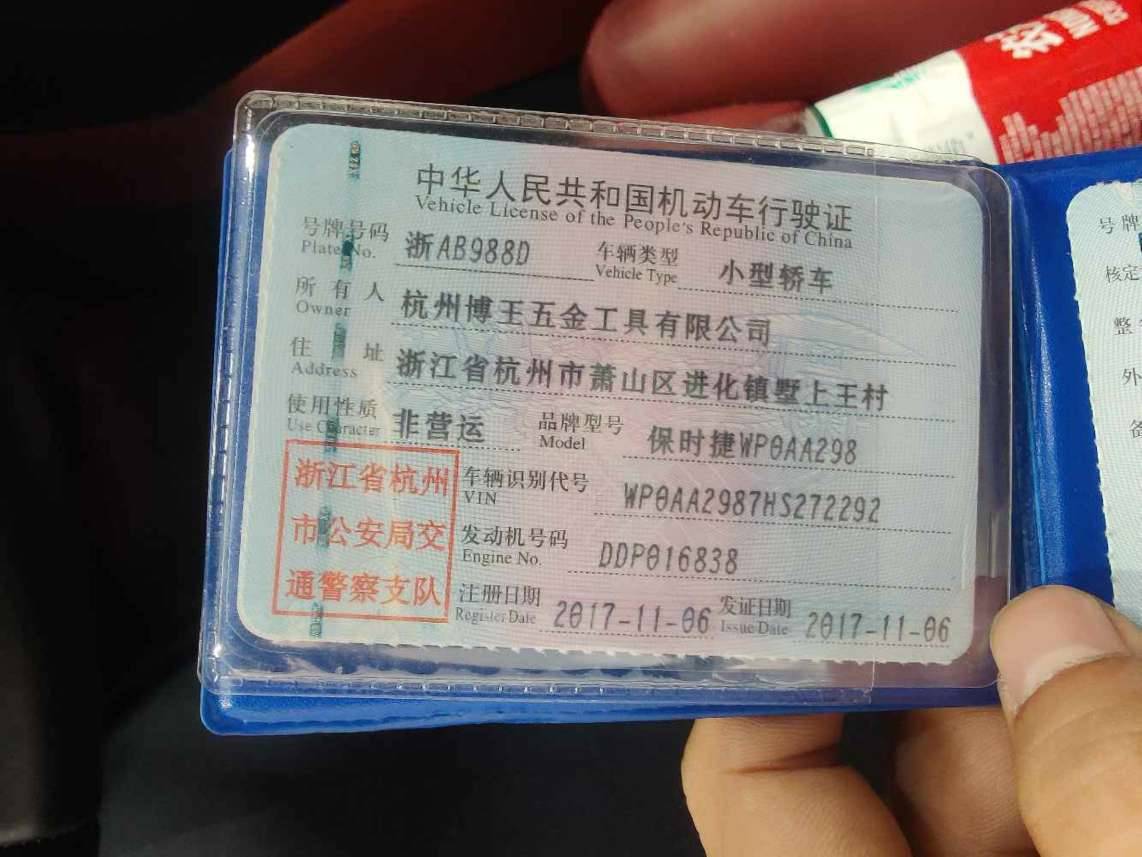 中华人民共和国机动车行驶证
Vehicle License of the People's Republic of China
号牌号码 浙AB988D 车辆类型 小型轿车
Plate No. Vehicle Type
所有人 杭州博王五金工具有限公司
Owner
住址 浙江省杭州市萧山区进化镇墅上王村
Address
使用性质 非营运 品牌型号 保时捷WP0AA298
Use Character Model
浙江省杭州
市公安局交
通警察支队
车辆识别代号 WP0AA2987HS272292
VIN
发动机号码 DDP016838
Engine No.
注册日期 2017-11-06 发证日期 2017-11-06
Register Date Issue Date
号牌
核定
整
外